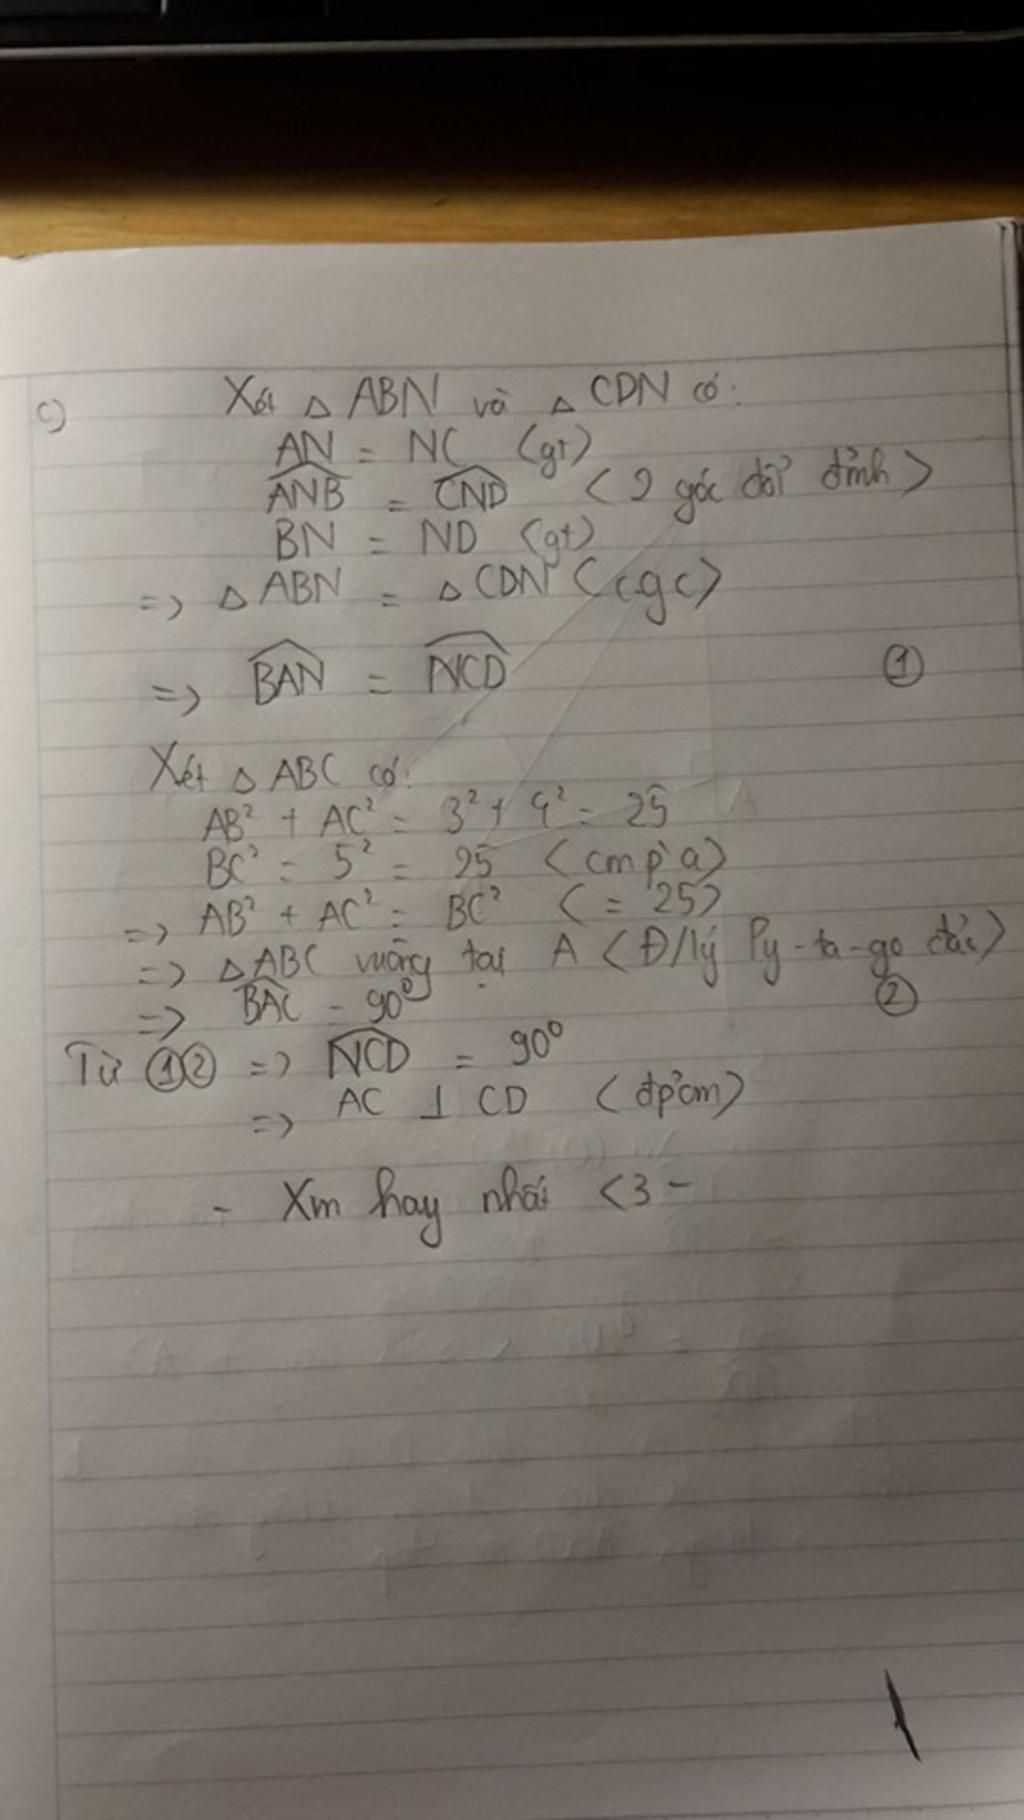 c) Xét △ ABN và △ CDN có:
AN = NC (gt)
ANB = CND (2 góc đối đỉnh)
BN = ND (gt)
=> △ ABN = △ CDN (cgc)
=> BAN = NCD ①
Xét △ ABC có:
AB² + AC² = 3² + 4² = 25
BC² = 5² = 25 (cm p a)
=> AB² + AC² = BC² (= 25)
=> △ ABC vuông tại A (Đ/lý Py-ta-go đảo)
=> BAC = 90° ②
Từ ①② => NCD = 90°
=> AC ⊥ CD (đpcm)
- Xm hay nhất <3 -